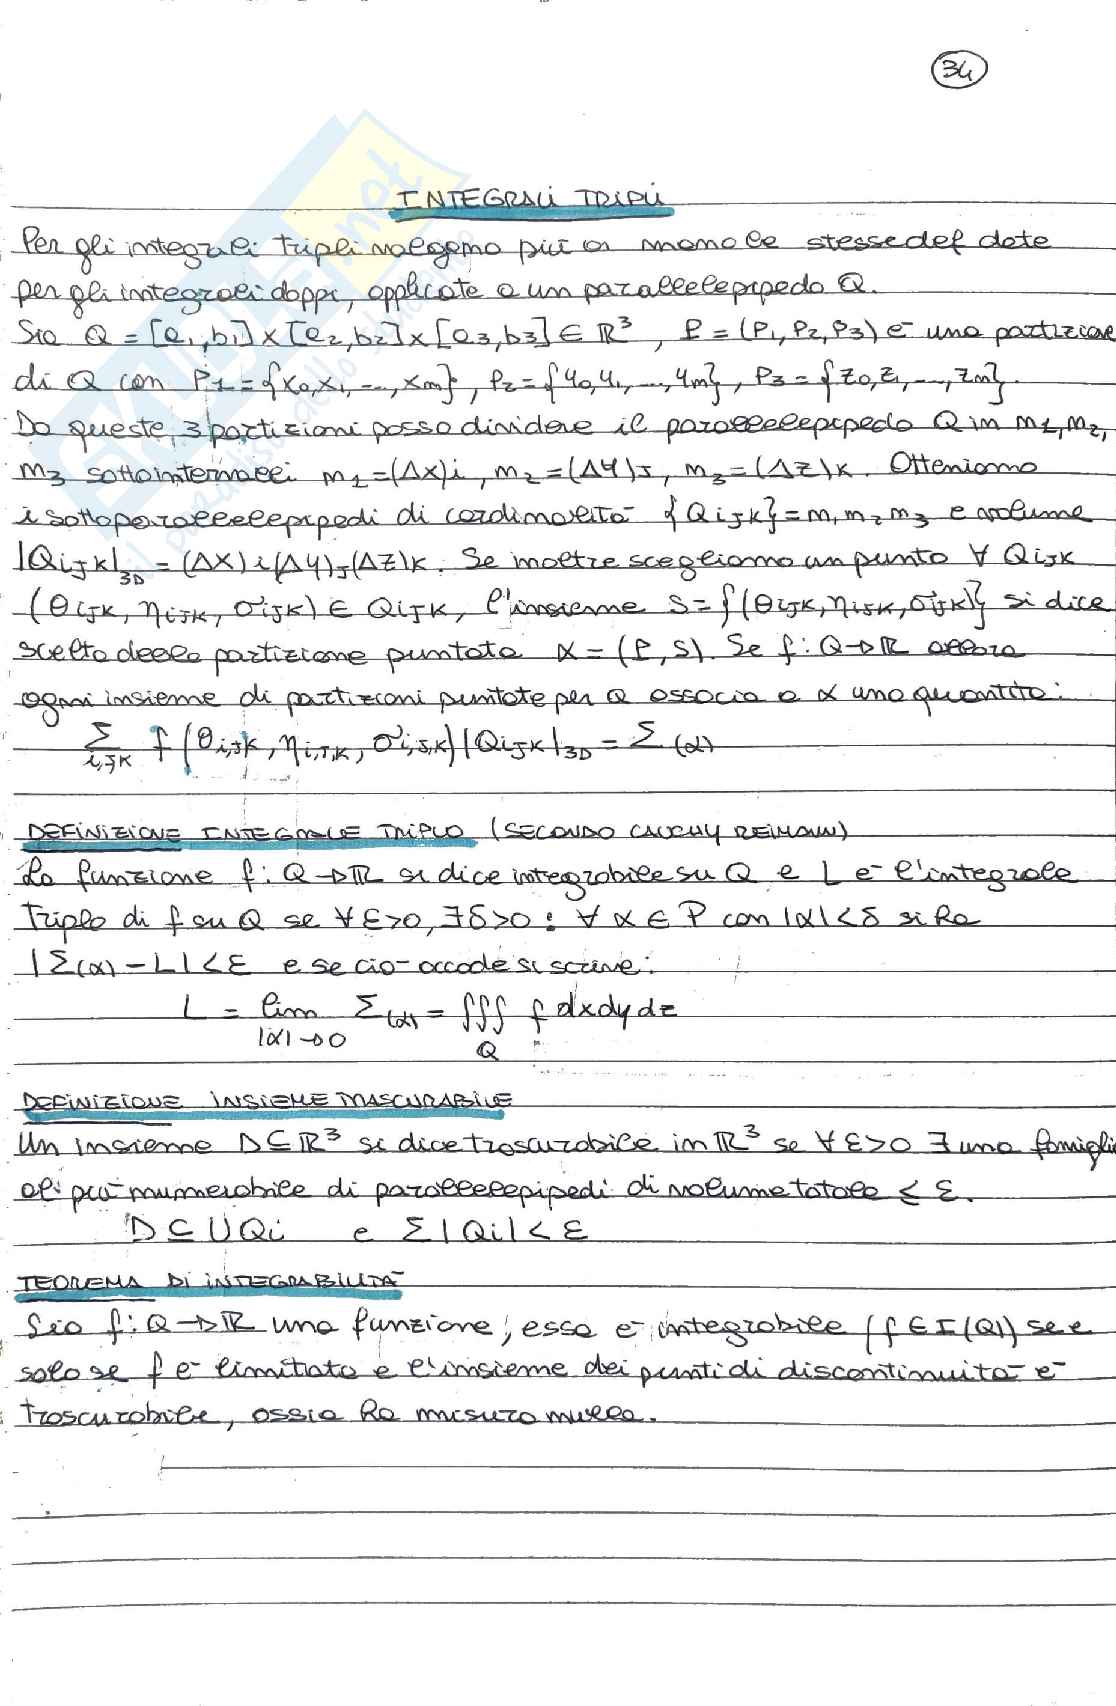 34
INTEGRALI TRIPLI
Per gli integrali tripli valgono più o meno le stesse def date
per gli integrali doppi, applicate a un parallelepipedo Q.
Sia Q = [a1,b1]×[a2,b2]×[a3,b3] ∈ ℝ³, P = (P1,P2,P3) è una partizione
di Q con P1={x0,x1,...,xm}, P2={y0,y1,...,ym}, P3={z0,z1,...,zm}.
Da queste, 3 partizioni posso dividere il parallelepipedo Q in m1,m2,
m3 sottointervalli m1=(Δx)i, m2=(Δy)J, m3=(Δz)K. Otteniamo
i sottoparallelepipedi di cardinalità {QiJK}=m1m2m3 e volume
|QiJK|3D = (Δx)i(Δy)J(Δz)K. Se inoltre scegliamo un punto ∀ QiJK
(θiJK, ηiJK, σiJK) ∈ QiJK, l'insieme S={(θiJK,ηiJK,σiJK)} si dice
scelta della partizione puntata α=(P,S). Se f: Q→ℝ allora
ogni insieme di partizioni puntate per Q associa a α una quantità:
Σi,JK f(θi,JK, ηi,J,K, σi,J,K)|QiJK|3D = Σ(α)
DEFINIZIONE INTEGRALE TRIPLO (SECONDO CAUCHY REIMANN)
La funzione f: Q→ℝ si dice integrabile su Q e L è l'integrale
triplo di f su Q se ∀ε>0, ∃δ>0: ∀ α ∈ P con |α|<δ si ha
|Σ(α) − L|<ε e se ciò accade si scrive:
L = lim Σ(α) = ∫∫∫ f dxdydz
|α|→0 Q
DEFINIZIONE INSIEME TRASCURABILE
Un insieme D⊆ℝ³ si dice trascurabile in ℝ³ se ∀ε>0 ∃ una famigli
al più numerabile di parallelepipedi di volume totale ≤ ε.
D ⊆ ∪Qi e Σ|Qi|<ε
TEOREMA DI INTEGRABILITÀ
Sia f: Q→ℝ una funzione, essa è integrabile (f∈I(Q)) se e
solo se f è limitata e l'insieme dei punti di discontinuità è
trascurabile, ossia ha misura nulla.